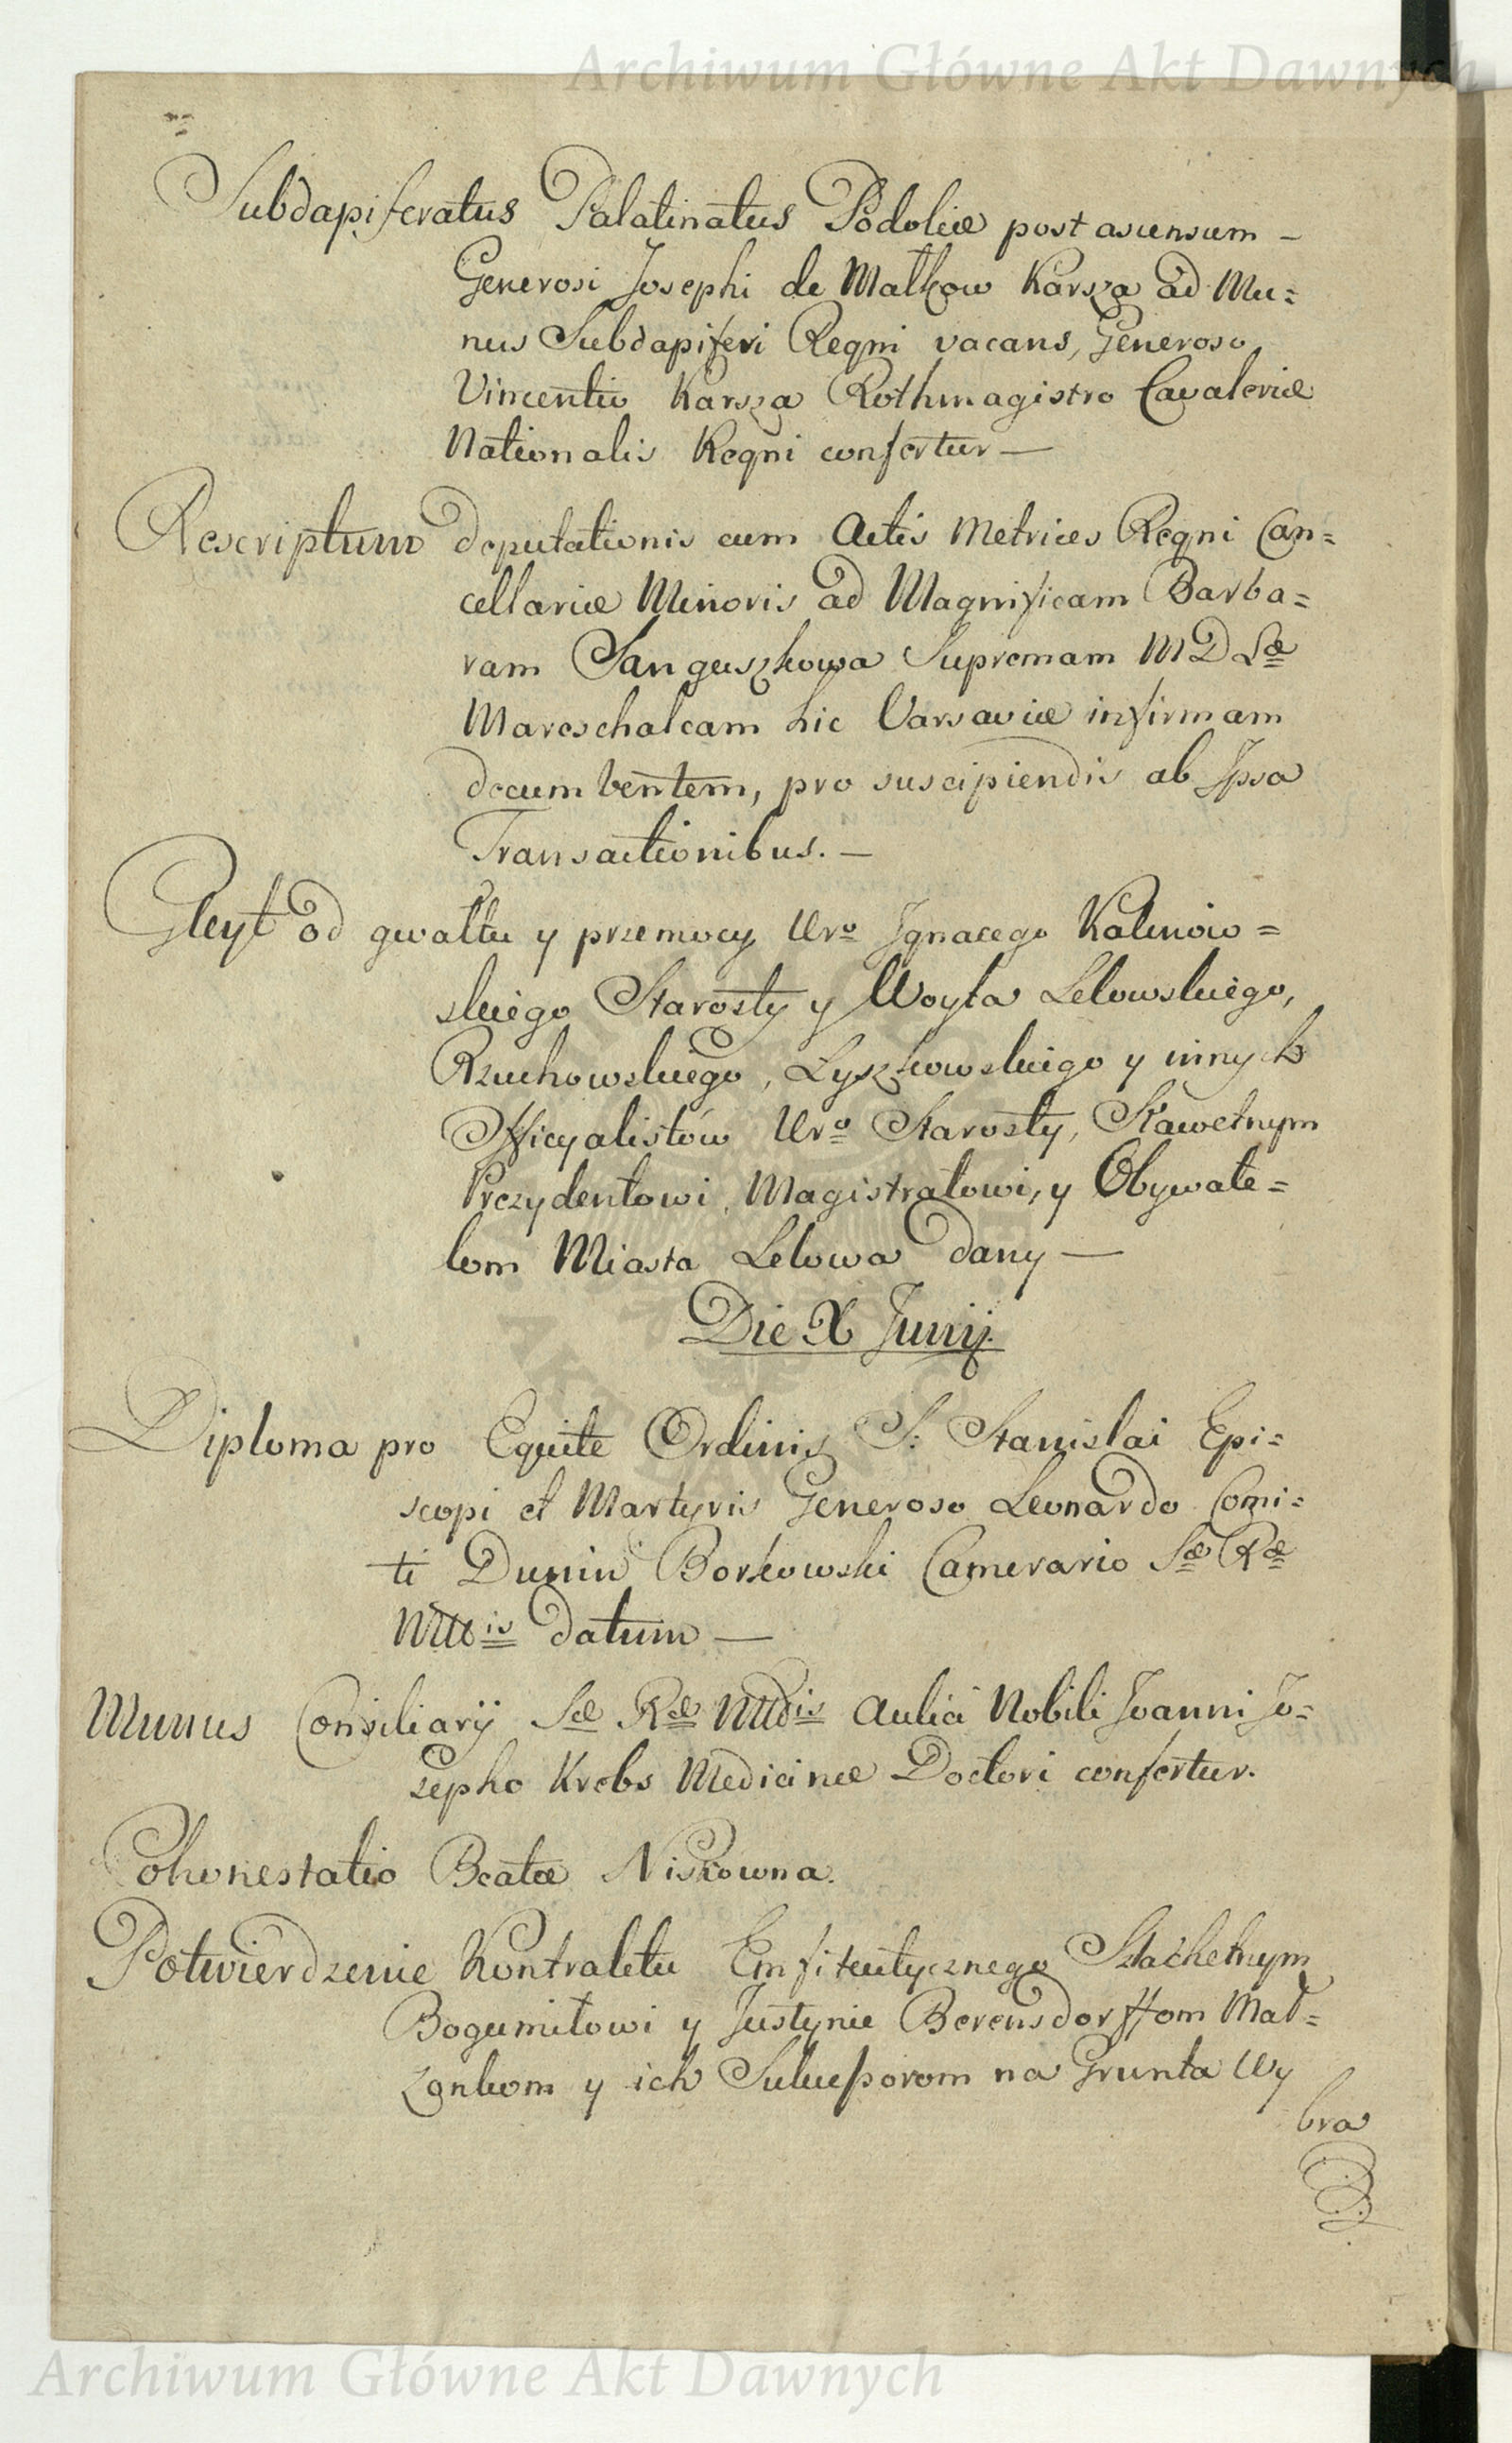 Archiwum Główne Akt Dawnych
Subdapiferatus Palatinatus Podoliæ post ascensum —
Generosi Josephi de Małkow Karsza ad Mu=
nus Subdapiferi Regni vacans, Generoso
Vincentio Karsza Rothmagistro Cavaleriæ
Nationalis Regni confertur —
Rescriptum deputationis cum Actis Metrices Regni Can=
cellariæ Minoris ad Magnificam Barba=
ram Sanguszkowa Supremam M D Læ
Mareschalcam hic Varsaviæ infirmam
decumbentem, pro suscipiendis ab Ipsa
Transactionibus. —
Gleyt od gwałtu y przemocy Uro Jgnacego Kalinow=
skiego Starosty y Woyta Lelowskiego,
Rzuchowskiego, Łyszkowskiego y innych
Officyalistów Uro Starosty, Sławetnym
Prezydentowi, Magistratowi, y Obywate=
lom Miasta Lelowa dany —
Die X Junij.
Diploma pro Equite Ordinis S: Stanislai Epi=
scopi et Martyris Generoso Leonardo Comi=
ti Dunin Borkowski Camerario Sæ Ræ
Mttis datum —
Munus Consiliarij Sæ Ræ Mttis Aulici Nobili Joanni Jo=
sepho Krebs Medicinæ Doctori confertur.
Cohonestatio Beatæ Niskowna.
Potwierdzenie Kontraktu Emfiteutycznego Szlachetnym
Bogumiłowi y Justynie Berensdorffom Mał=
żonkom y ich Sukcessorom na Grunta Wy
bra
Archiwum Główne Akt Dawnych